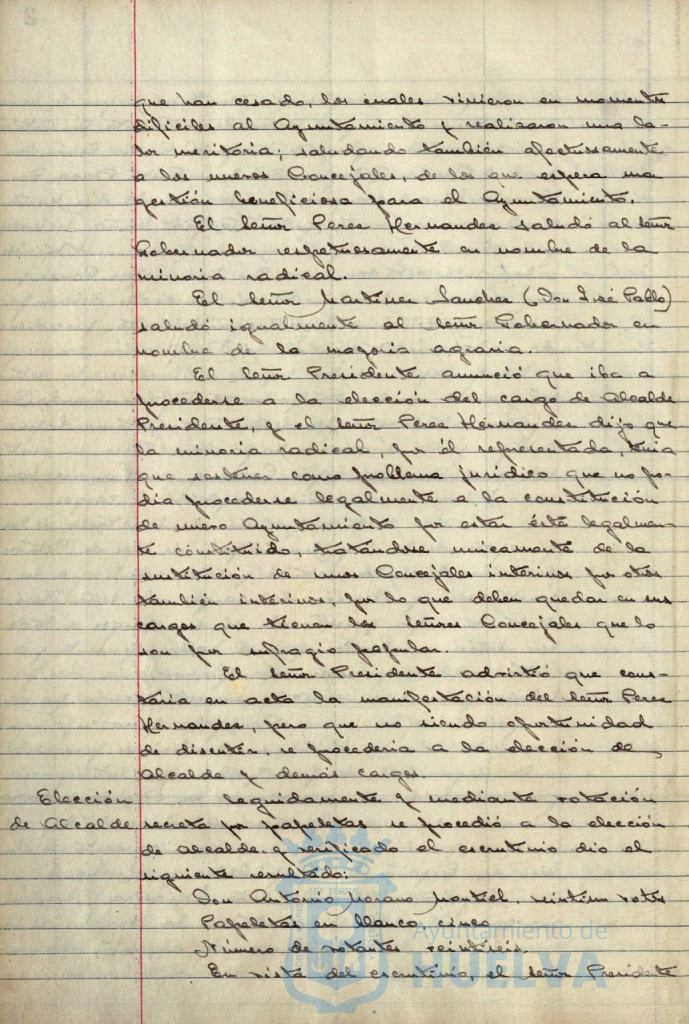 que han cesado, los cuales vinieron en momentos
difíciles al Ayuntamiento y realizaron una la-
bor meritoria; saludando también afectuosamente
a los nuevos Concejales, de los que espera una
gestión beneficiosa para el Ayuntamiento.
El Señor Perez Hernandez saludó al Señor
Gobernador respetuosamente en nombre de la
minoria radical.
El Señor Martinez Sanchez (Don José Pablo)
saludó igualmente al Señor Gobernador en
nombre de la mayoria agraria.
El Señor Presidente anunció que iba a
procederse a la elección del cargo de Alcalde
Presidente, y el Señor Perez Hernandez dijo que
la minoria radical, por él representada, tenia
que sostener como problema jurídico que no po-
dia procederse legalmente a la constitución
de nuevo Ayuntamiento por estar éste legalmen-
te constituido, tratándose unicamente de la
sustitución de unos Concejales interinos por otros
también interinos, por lo que deben quedar en sus
cargos que tienen los Señores Concejales que lo
son por sufragio popular.
El Señor Presidente advirtió que cons-
taria en acta la manifestación del Señor Perez
Hernandez, pero que no siendo oportunidad
de discutir, se procederia a la elección de
Alcalde y demás cargos.
Elección de Alcalde
Seguidamente y mediante votación
secreta por papeletas se procedió a la elección
de Alcalde, y verificado el escrutinio dio el
siguiente resultado:
Don Antonio Moreno Montiel, veintiun votos
Papeletas en blanco, cinco
Número de votantes veintiseis.
En vista del escrutinio, el Señor Presidente
Ayuntamiento de
HUELVA